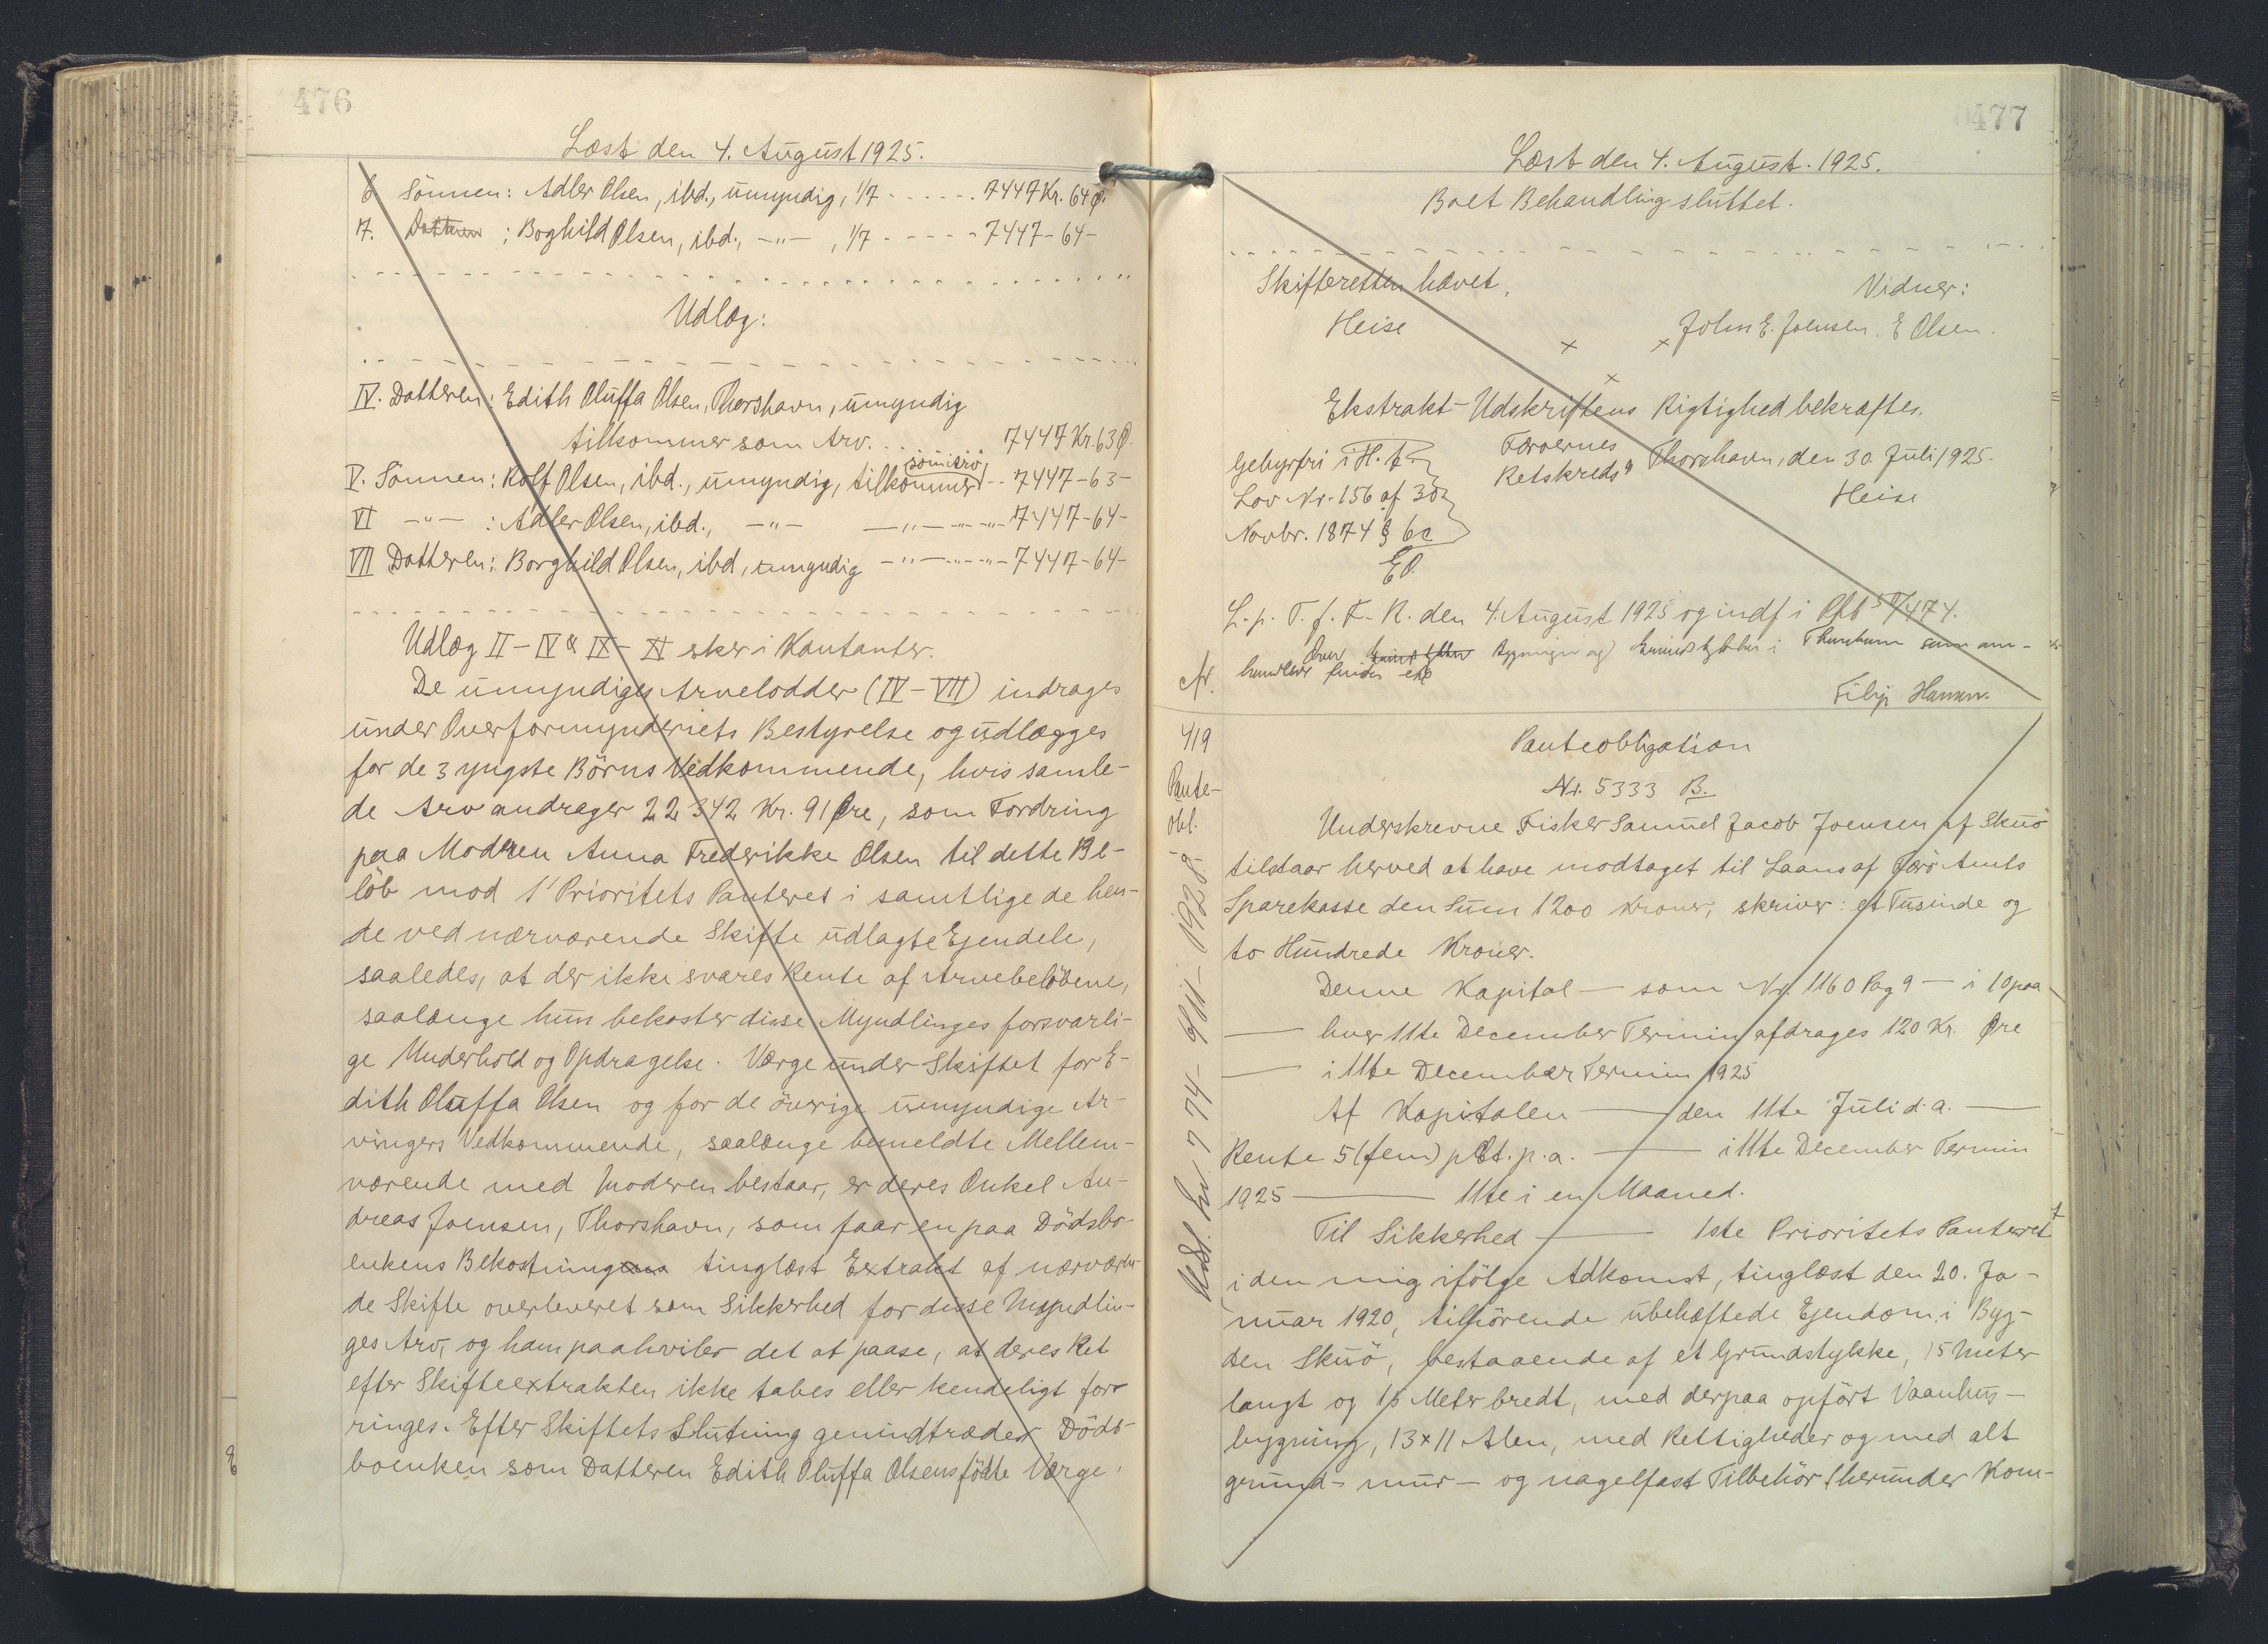 476
Læst den 4. August 1925.
6 Sönnen: Adler Olsen, ibd., umyndig, 1/7 - - - - - - 7447 Kr. 64 Ø.
7. Datteren ; Boghild Olsen, ibd., -"- , 1/7 - - - - - 7447 - 64 -
Udlæg:
IV. Datteren: Edith Oluffa Olsen, Thorshavn, umyndig
tilkommer som Arv. . . . 7447 Kr. 63 Ø.
V. Sönnen: Rolf Olsen, ibd., umyndig, tilkommer - - 7447 - 63 -
VI -"- : Adler Olsen, ibd., -"- -"- -"- -"- 7447 - 64 -
VII Datteren: Borghild Olsen, ibd, umyndig -"- -"- -"- 7447 - 64 -
Udlæg II - IV & IX - XI sker i Kontanter.
De umyndiges Arvelodder (IV - VII) inddrages
under Overformynderiets Bestyrelse og udlægges
for de 3 yngste Börns Vedkommende, hvis samle-
de Arv andrager 22 342 Kr. 91 Øre, som Fordring
paa Moderen Anna Frederikke Olsen til dette Be-
löb mod 1' Prioritets Panteret i samtlige de hen-
de ved nærværende Skifte udlagte Ejendele,
saaledes, at der ikke svares Rente af Arvebelöbene,
saalænge hun bekoster disse Myndlinges forsvarli-
ge Underhold og Opdragelse. Værge under Skiftet for E-
dith Oluffa Olsen og for de övrige umyndige Ar-
vingers Vedkommende, saalænge bemeldte Mellem-
værende med Moderen bestaar, er deres Onkel An-
dreas Joensen, Thorshavn, som faar en paa Dödsbo-
enkens Bekostning tinglæst Extrakt af nærværen-
de Skifte overleveret som Sikkerhed for disse Myndlin-
ges Arv, og ham paahviler det at paase, at deres Ret
efter Skifteextrakten ikke tabes eller kendeligt for-
ringes. Efter Skiftets Slutning genindtræder Döds-
boenken som Datteren Edith Oluffa Olsens födte Værge.
477
Læst den 4. August. 1925.
Boet Behandling sluttet.
Skifteretten hævet.
Vidner:
Heise
John E. Joensen. E Olsen.
Ekstrakt-Udskriftens Rigtighed bekræftes.
Færøernes
Retskreds, Thorshavn, den 30. Juli 1925.
Heise
Gebyrfri i H. t.
Lov Nr. 156 af 30
Novbr. 1874 § 6c
EO.
L. p. T. f. F. R. den 4. August 1925 og indf i Pfb 5 /474.
Filip Hansen.
419
Pante-
obl.
Panteobligation
Nr. 5333 B.
Underskrevne Fisker Samuel Jacob Joensen af Skuö
tilstaar herved at have modtaget til Laans af Færö Amts
Sparekasse den Sum 1200 Kroner, skriver: et Tusinde og
to Hundrede Kroner.
Denne Kapital — som Nr. 1160 Pag 9 — i 10 paa
— hver 11te December Termin afdrages 120 Kr. Øre
— i 11te December Termin 1925
Af Kapitalen — den 11te Juli d. a. —
Rente 5 (fem) pCt. p. a. — i 11te December Termin
1925 — 11te i en Maaned.
Til Sikkerhed — 1ste Prioritets Panteret
i den mig ifölge Adkomst, tinglæst den 20. Ja-
nuar 1920, tilhörende ubehæftede Ejendom i Byg-
den Skuö, bestaaende af et Grundstykke, 15 Meter
langt og 15 Meter bredt, med derpaa opfört Vaanhus-
bygning, 13 x 11 Alen, med Rettigheder og med alt
grund- mur- og nagelfast Tilbehör (herunder Kom-